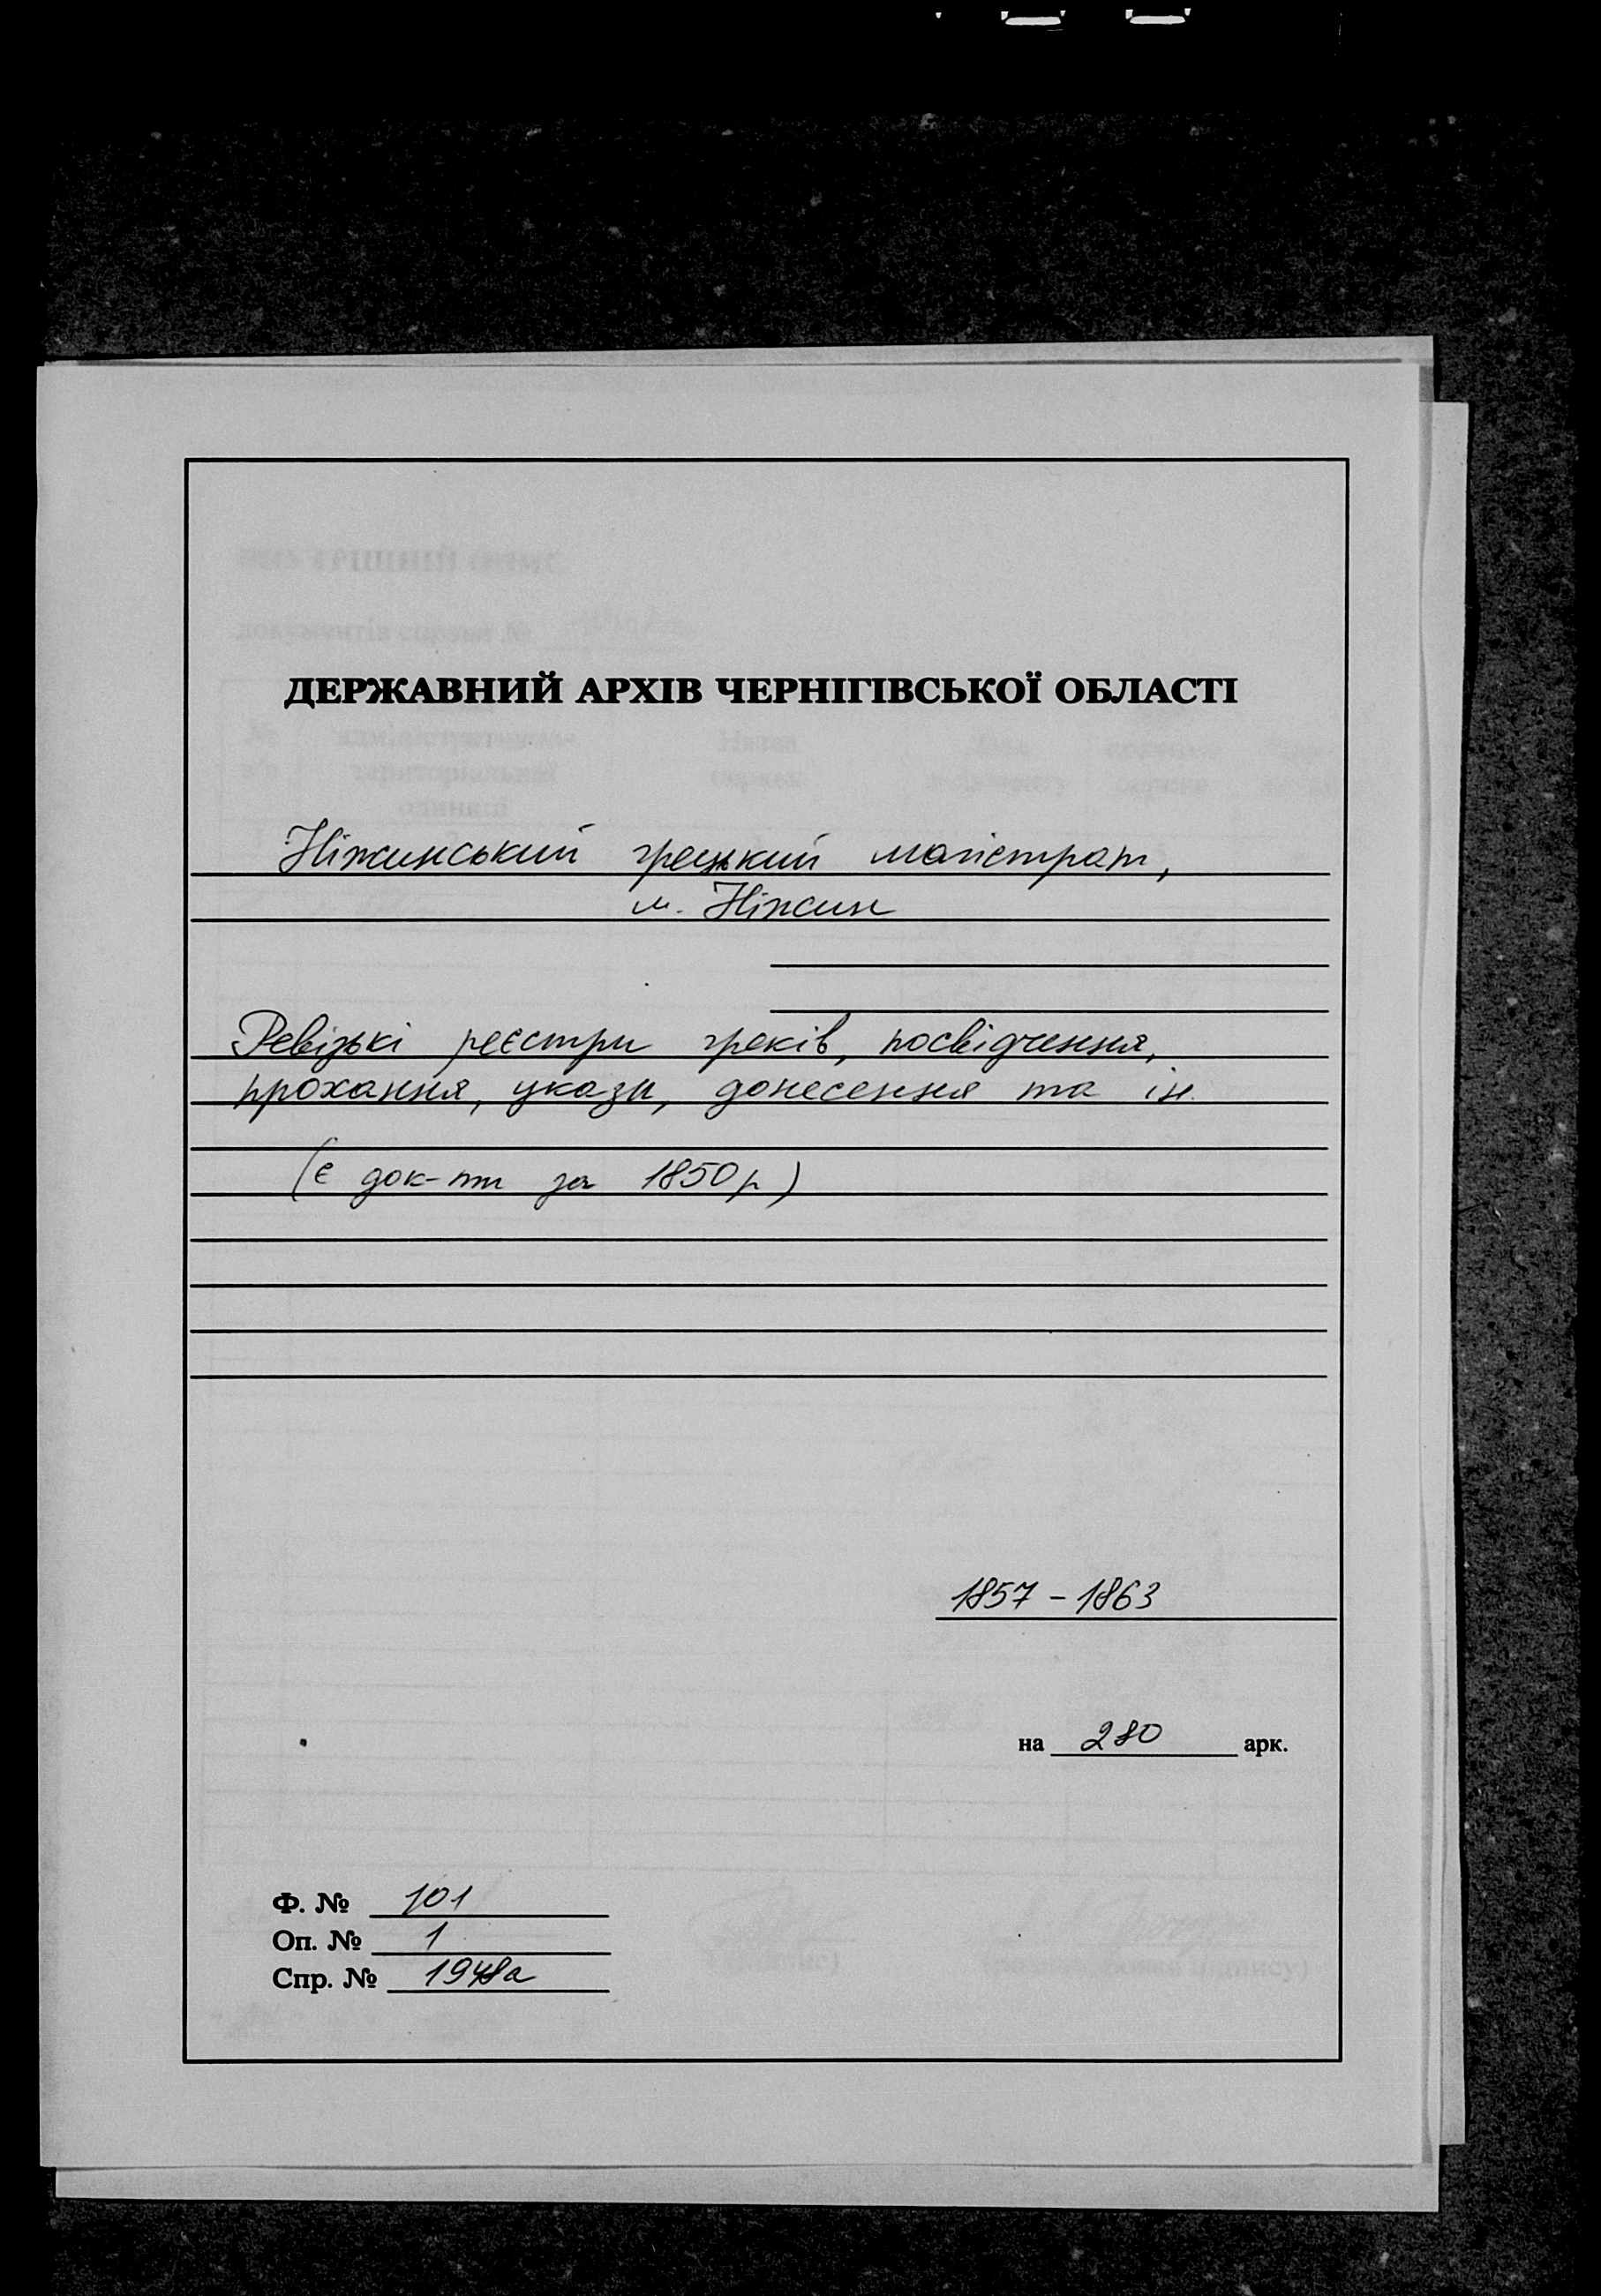 ДЕРЖАВНИЙ АРХІВ ЧЕРНІГІВСЬКОЇ ОБЛАСТІ
Ніжинський грецький магістрат,
м. Ніжин
Ревізькі реєстри греків, посвідчення,
прохання, укази, донесення та ін.
(є док-ти за 1850 р)
1857 - 1863
на 280 арк.
Ф. № 101
Оп. № 1
Спр. №